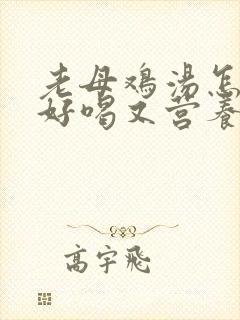 老母鸡汤怎
好喝又营养
高宇飛